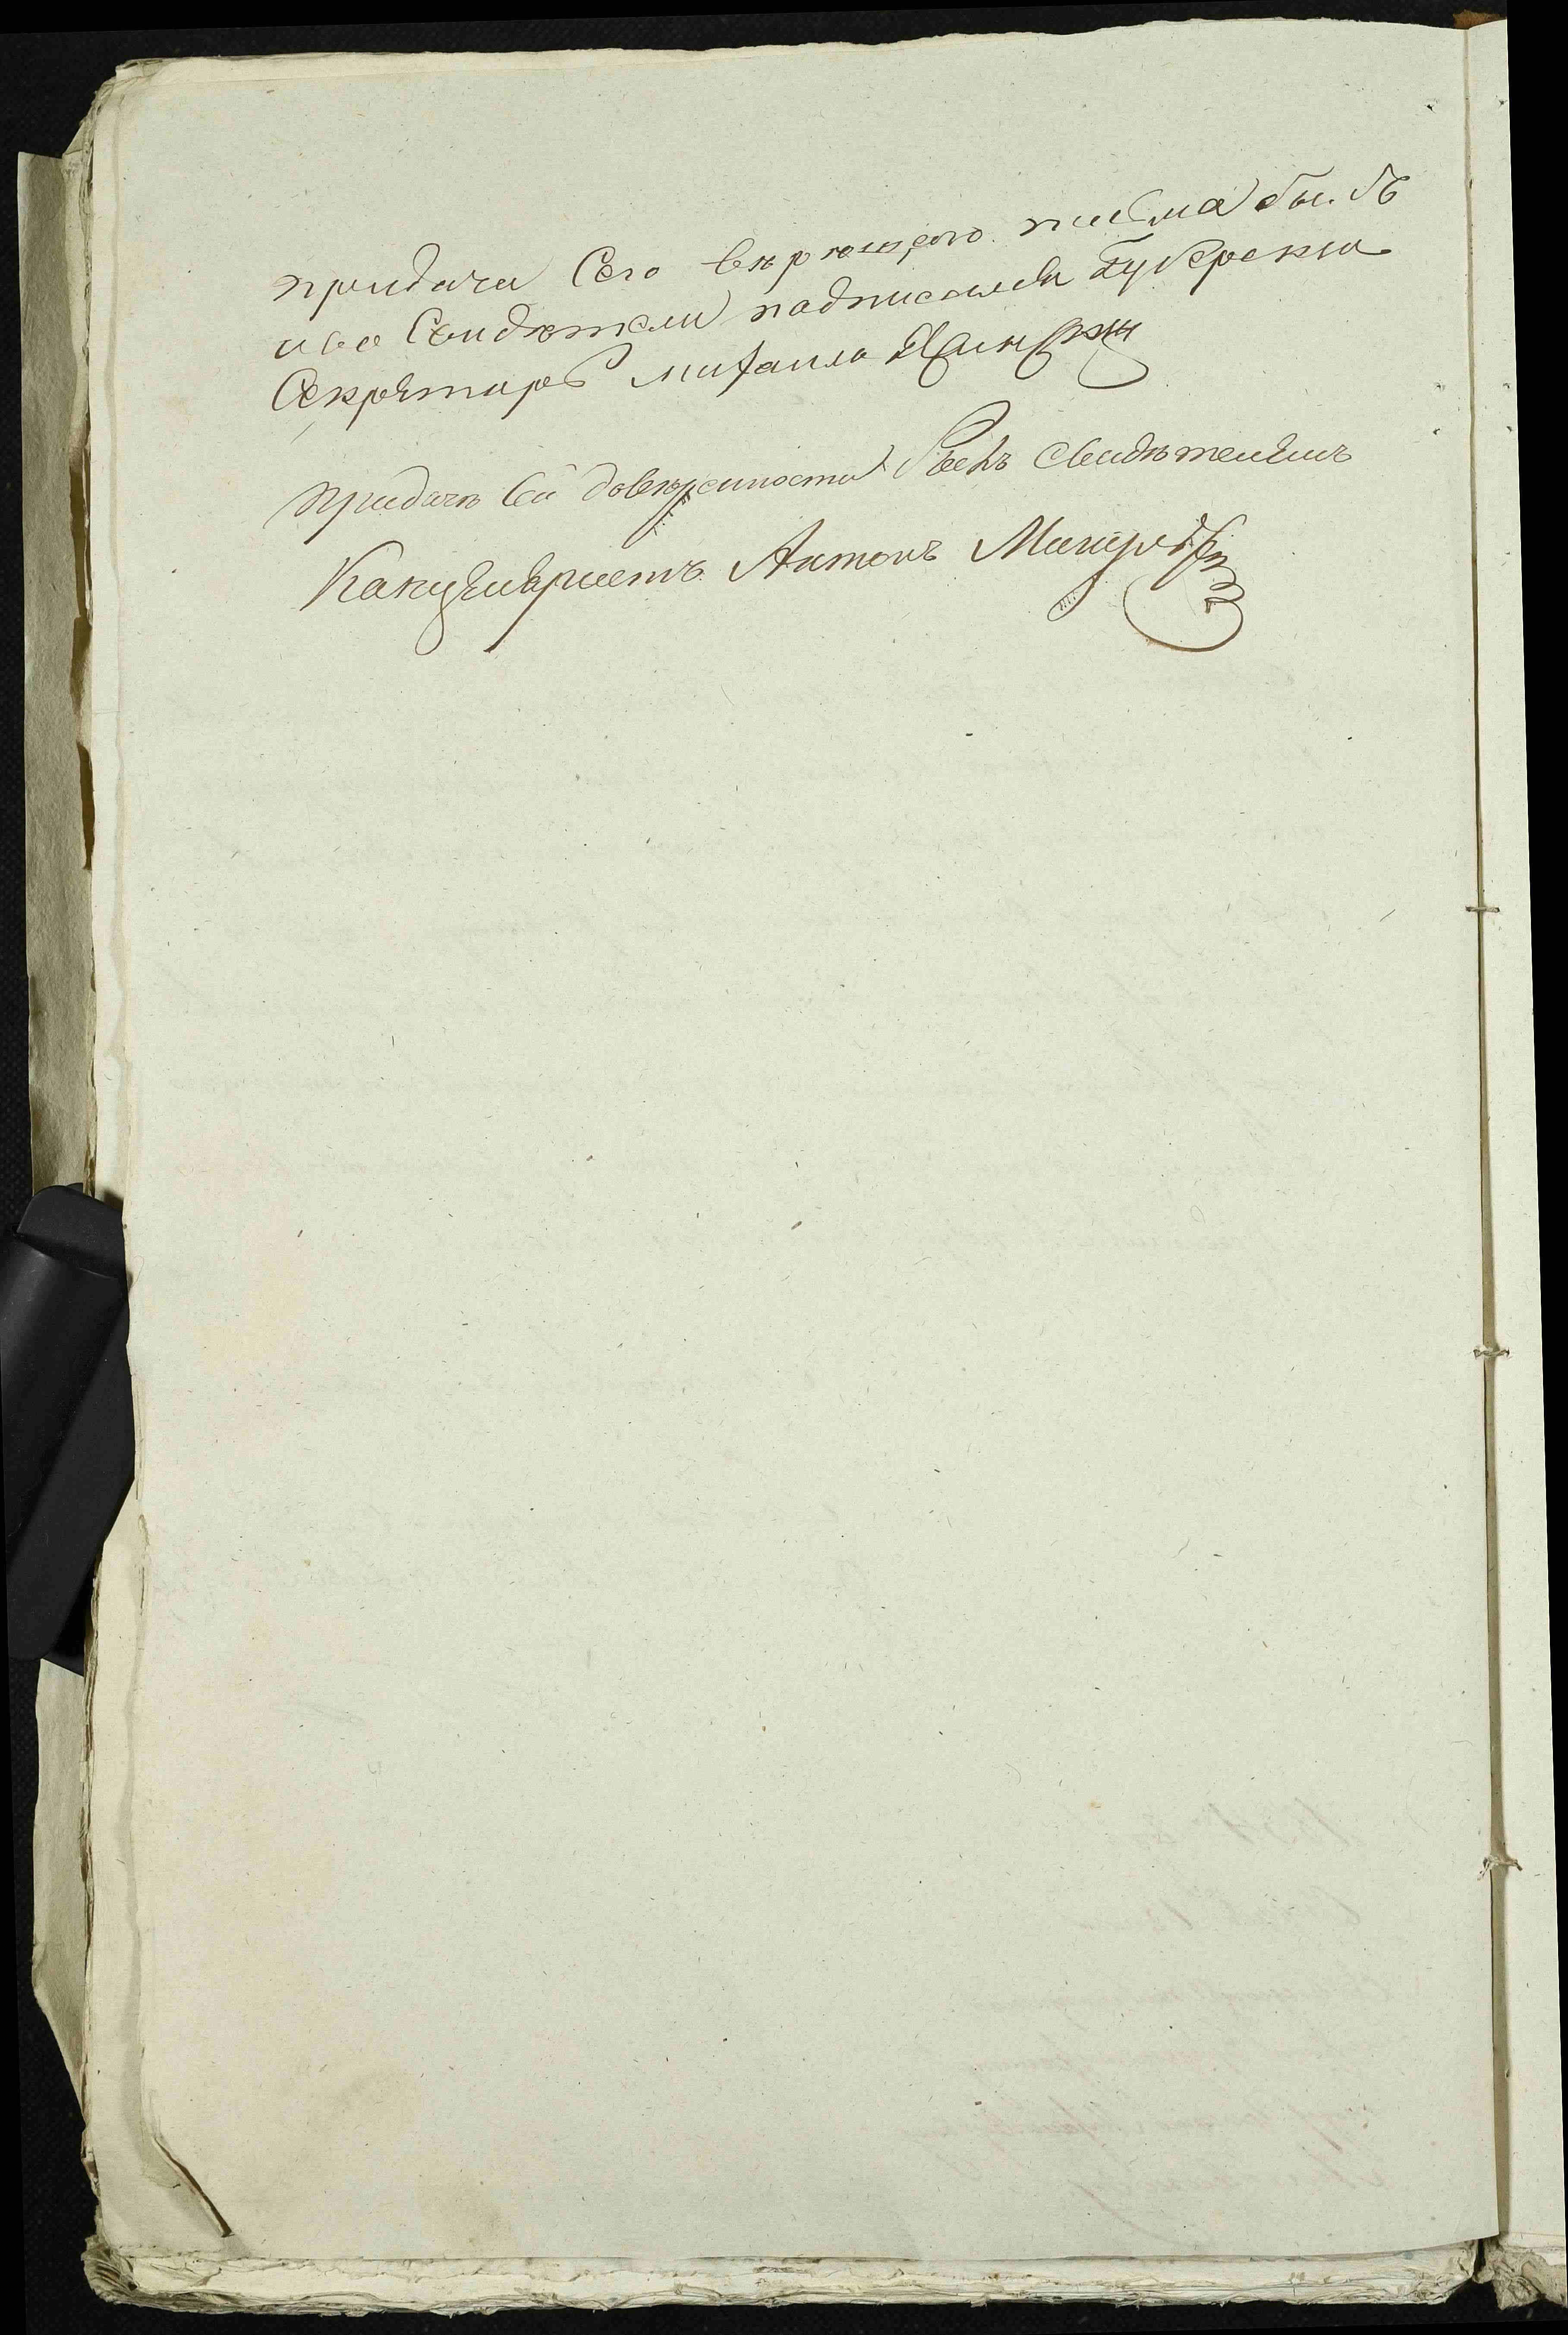 придачи Сего вѣрющаго писма былъ
иво Свидѣтели подписался Губернски
Секретарь михаила
придачѣ сей довѣренности былъ свидѣтелемъ
Канцеляристъ Антонъ